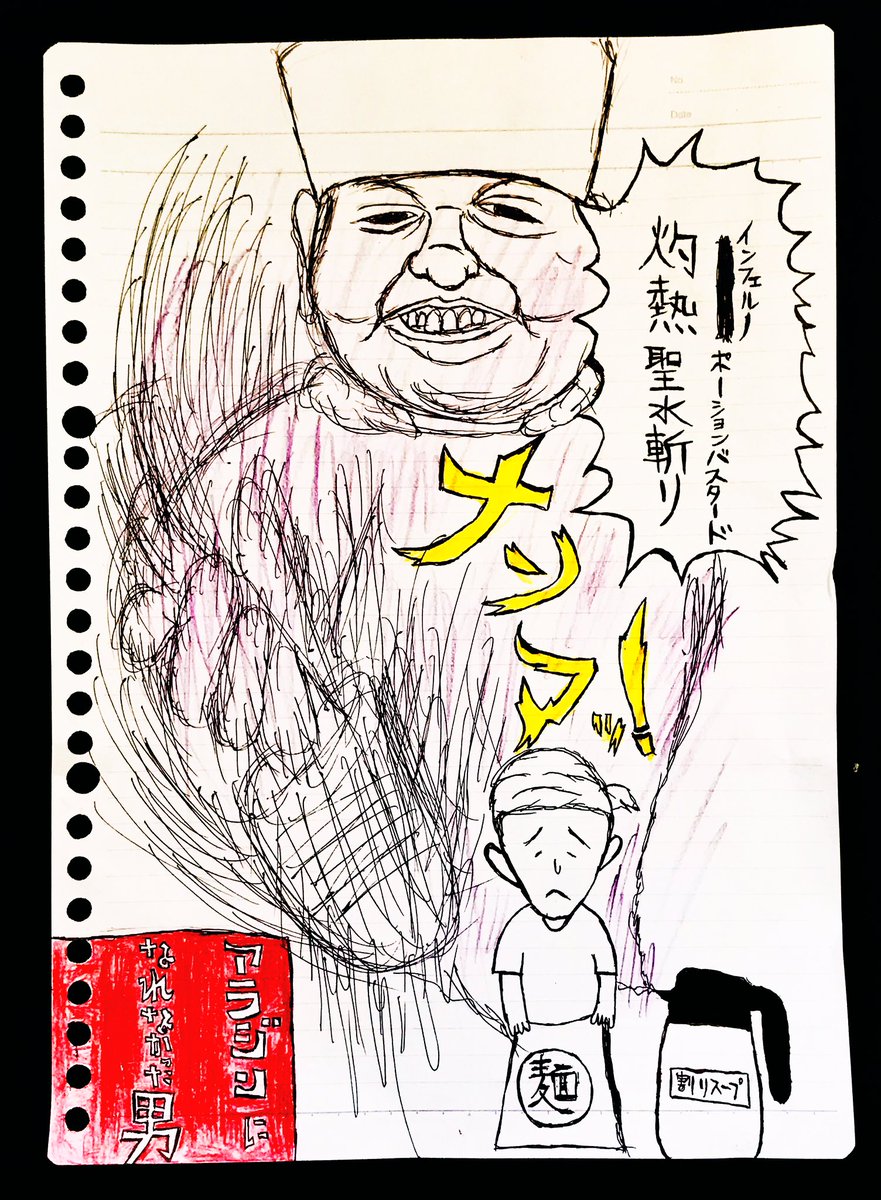 No.
Date
インフェルノ ポーションバスタード
灼熱聖水斬り
メンマッ!
麺
割りスープ
アラジンに
なれなかった男